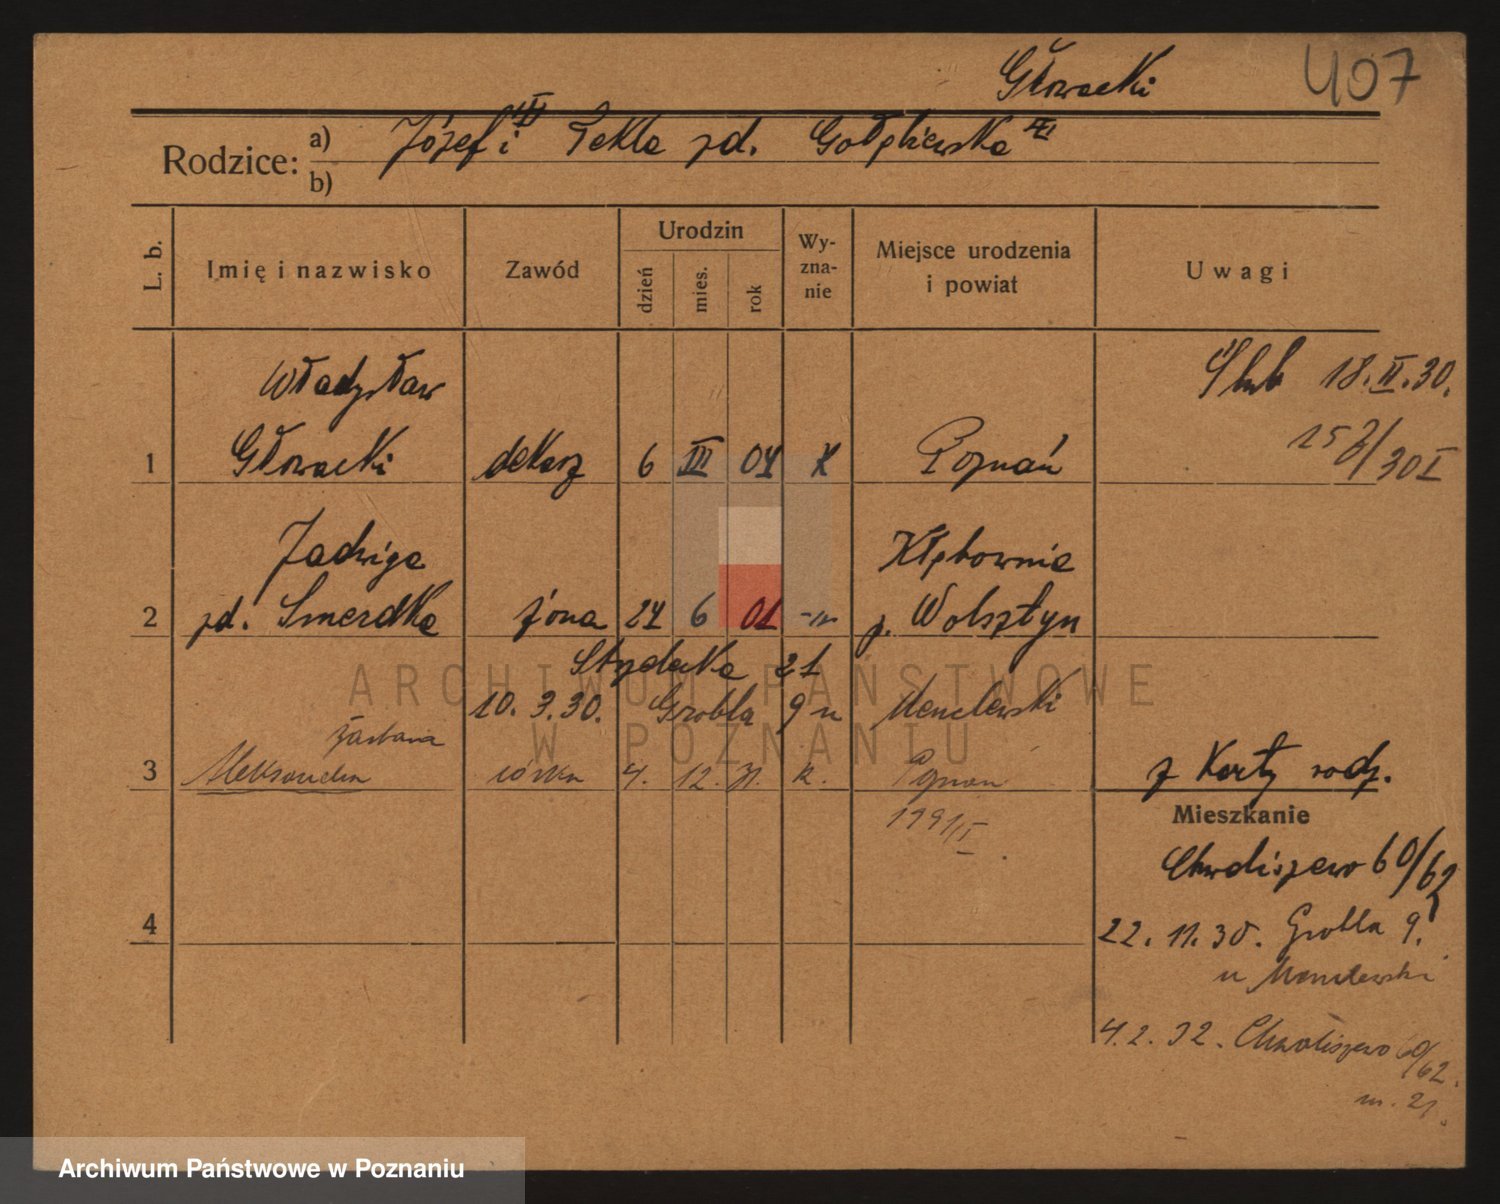 Głowacki 407
Rodzice: a) Józef i Tekla zd. Gołębiewska
b)
L. b. Imię i nazwisko Zawód Urodzin dzień mies. rok Wy-zna-nie Miejsce urodzenia i powiat Uwagi
Władysław Ślub 18.II.30.
1 Głowacki dekarz 6 III 04 K Poznań
30 I
Jadwiga
2 zd. Smerdka żona 24 6 01 -"- p. Wolsztyn
21
10. 3. 30. Grobla 9 u Menclewski
3 Aleksandra córka 4. 12. 31. k. Poznań z Karty rodz.
Mieszkanie
Chwaliszewo 60/62
4
22. 11. 30. Grobla 9.
u Menclewski
4. 2. 32. Chwaliszewo 60/62.
m. 21.
ARCHIWUM PAŃSTWOWE
W POZNANIU
Archiwum Państwowe w Poznaniu